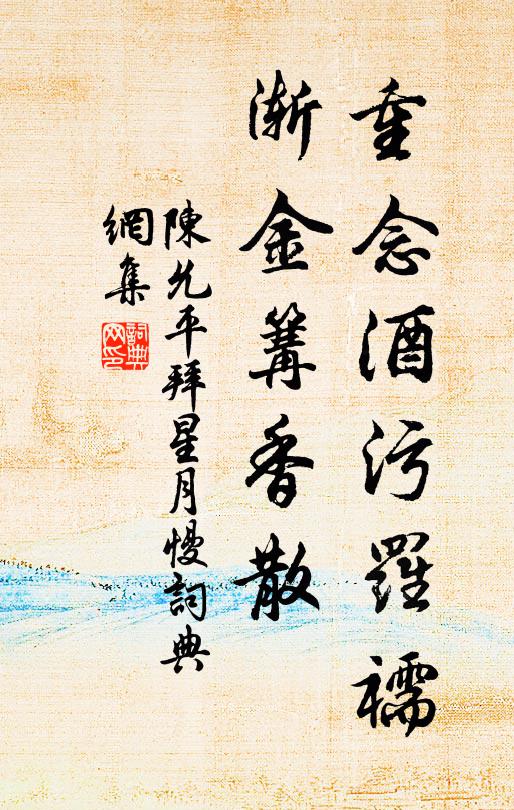 重念酒污羅襦
漸金篝香散
陳允平拜星月慢詞典
網集
詞典網印